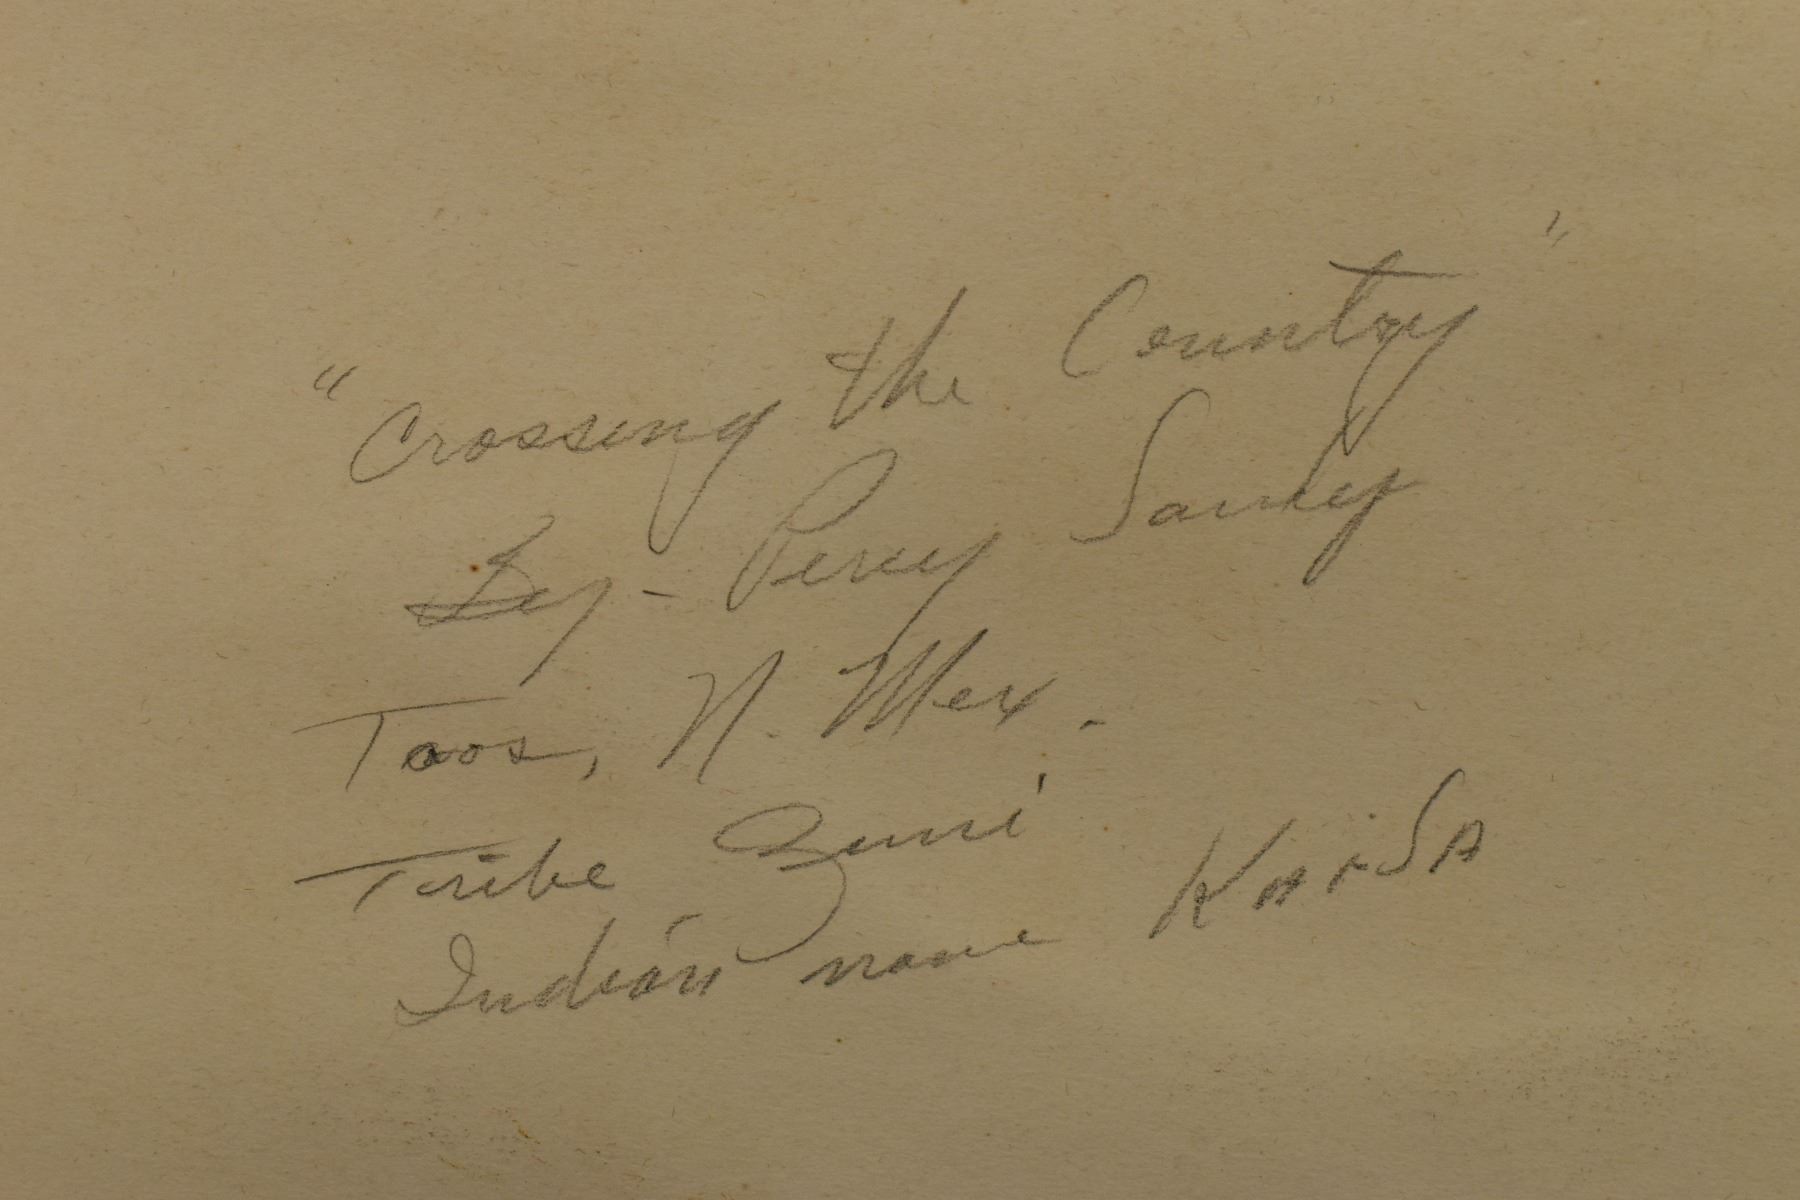 "Crossing the Country"
By - Percy Sandy
Taos, N. Mex.
Tribe Zuni
Indian name KaiSA